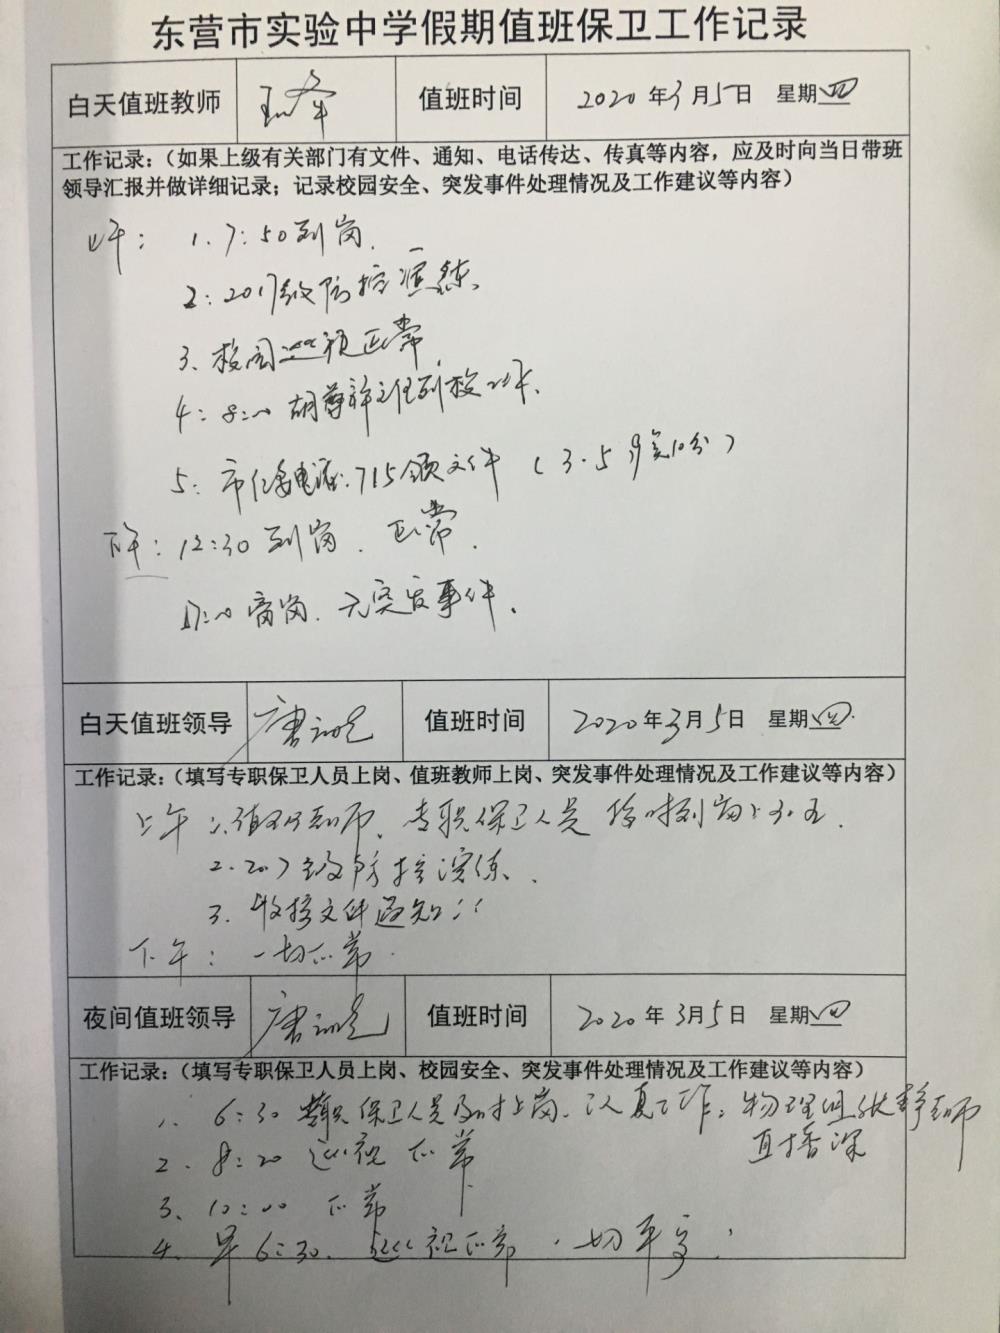 东营市实验中学假期值班保卫工作记录
白天值班教师 值班时间 2020年3月5日 星期四
工作记录：（如果上级有关部门有文件、通知、电话传达、传真等内容，应及时向当日带班
领导汇报并做详细记录；记录校园安全、突发事件处理情况及工作建议等内容）
上午： 1、7:50到岗、
2：2017级防控演练、
3、校园巡视正常
4：8:00 胡尊祥主任到校
5：市 电话：715领文件（3.5号 10分）
下午：12:30到岗、正常、
17:00离岗、无突发事件、
白天值班领导 唐 值班时间 2020年3月5日 星期四
工作记录：（填写专职保卫人员上岗、值班教师上岗、突发事件处理情况及工作建议等内容）
上午：1.值班教师、专职保卫人员按时到岗
2.2017级防控演练、
3、收接文件通知
下午：一切正常
夜间值班领导 唐 值班时间 2020年3月5日 星期四
工作记录：（填写专职保卫人员上岗、校园安全、突发事件处理情况及工作建议等内容）
1、6:30 专职保卫人员及时上岗、认真工作。物理组张静老师
直播课
2、8:20 巡视正常
3、10:00 正常
4、早6:30、巡视正常、一切平安